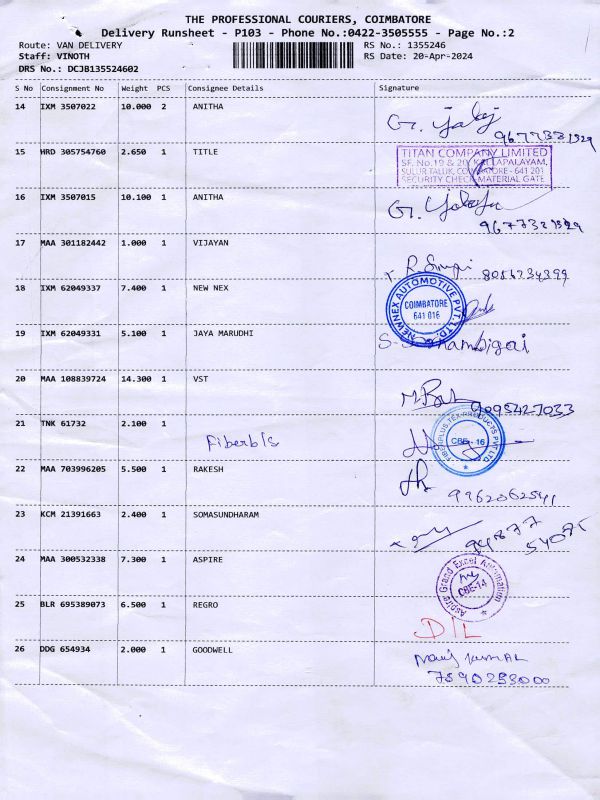 THE PROFESSIONAL COURIERS, COIMBATORE
Delivery Runsheet - P103 - Phone No.:0422-3505555 - Page No.:2
Route: VAN DELIVERY RS No.: 1355246
Staff: VINOTH RS Date: 20-Apr-2024
DRS No.: DCJB135524602
S No Consignment No Weight PCS Consignee Details Signature
14 IXM 3507022 10.000 2 ANITHA
15 HRD 305754760 2.650 1 TITLE
TITAN COMPANY LIMITED
SF. No.19 & 20, KALLAPALAYAM,
SULUR TALUK, COIMBATORE - 641 201
SECURITY CHECK MATERIAL GATE
16 IXM 3507015 10.100 1 ANITHA
17 MAA 301182442 1.000 1 VIJAYAN
8056234399
18 IXM 62049337 7.400 1 NEW NEX
NEWNEX AUTOMOTIVE PVT. LTD.
COIMBATORE
641 016
19 IXM 62049331 5.100 1 JAYA MARUDHI
20 MAA 108839724 14.300 1 VST
9095427033
21 TNK 61732 2.100 1
FIBROPLUS TEX-PRODUCTS PVT LTD
CBE - 16
22 MAA 703996205 5.500 1 RAKESH
9962062541
23 KCM 21391663 2.400 1 SOMASUNDHARAM
94877
54075
24 MAA 300532338 7.300 1 ASPIRE
Aspire Grand Excel Automation
CBE-14
25 BLR 695389073 6.500 1 REGRO
D/L
26 DDG 654934 2.000 1 GOODWELL
7590293000